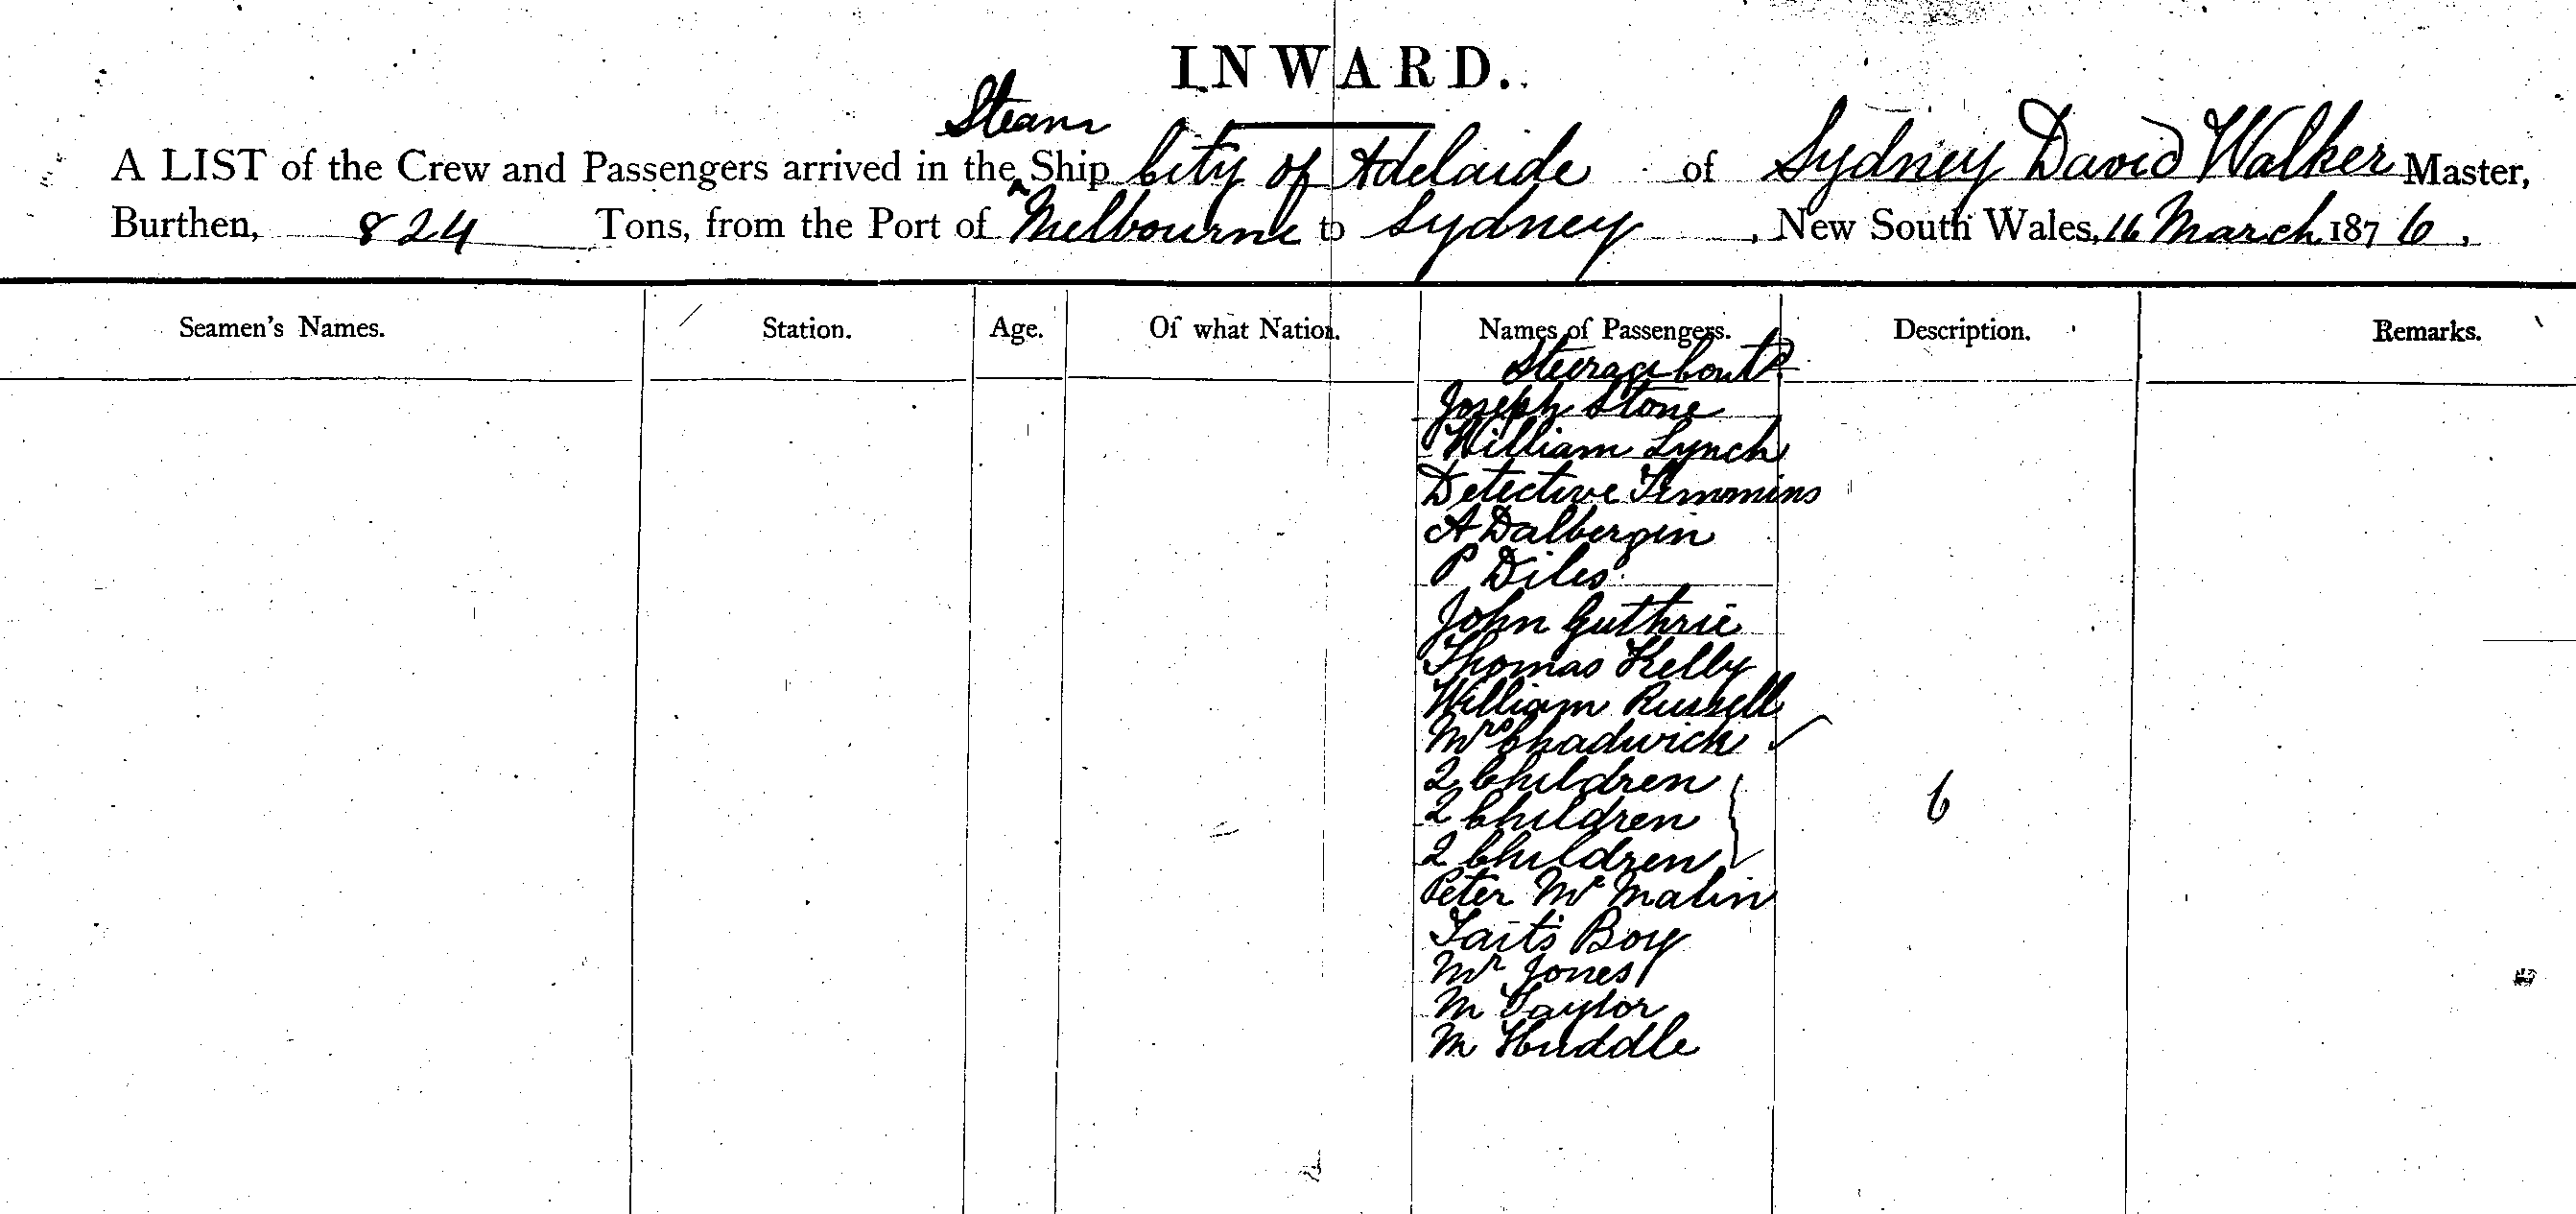 INWARD.
Steam
A LIST of the Crew and Passengers arrived in the ^ Ship City of Adelaide of Sydney David Walker Master,
Burthen, 824 Tons, from the Port of Melbourne to Sydney, New South Wales, 16 March 1876,
Seamen's Names. Station. Age. Of what Nation. Names of Passengers. Description. Remarks.
Steerage Contd
Joseph Stone
William Lynch
Detective Timmins
A Dalbergin
P Diles
John Guthrie
Thomas Kelly
William Russell
Mrs Chadwick
2 Children
2 Children 6
2 Children
Peter Mc Malin
Tait's Boy
Mr Jones
M Taylor
M Huddle